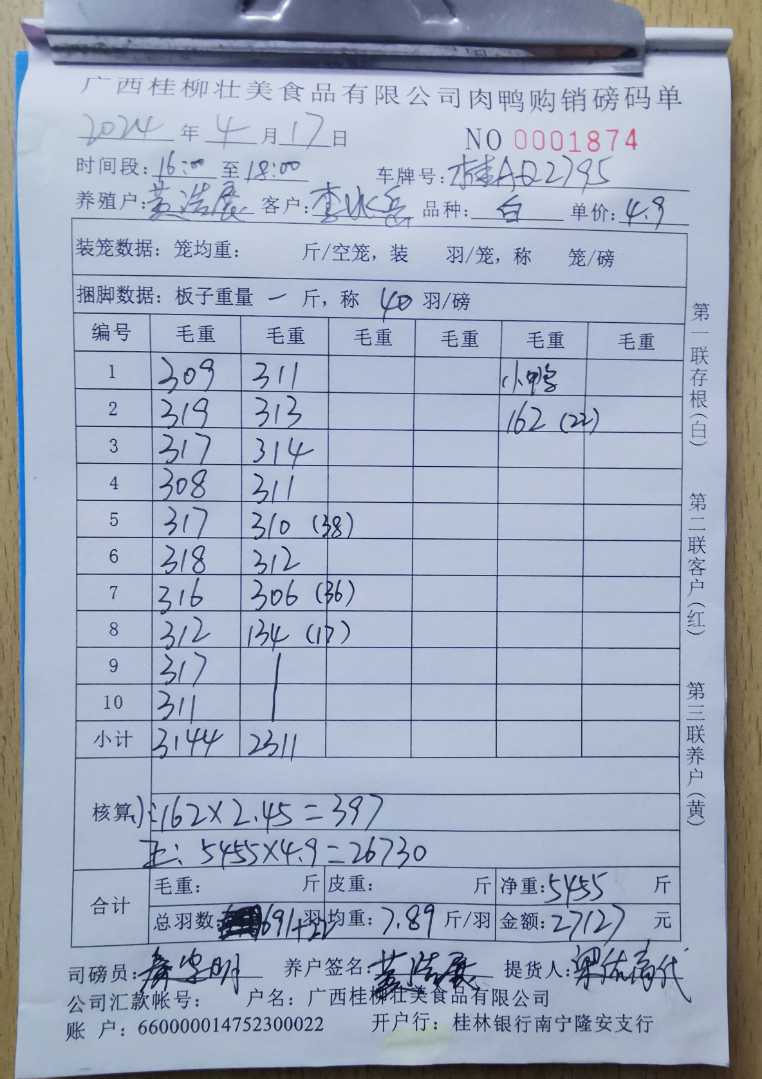 广西桂柳壮美食品有限公司肉鸭购销磅码单
2024 年 4 月 17 日 NO 0001874
时间段: 16:00 至 18:00 车牌号: 桂AQ2795
养殖户: 黄浩展 客户: 李冰岳 品种: 白 单价: 4.9
装笼数据: 笼均重: 斤/空笼, 装 羽/笼, 称 笼/磅
捆脚数据: 板子重量 一 斤, 称 40 羽/磅
编号 毛重 毛重 毛重 毛重 毛重 毛重
1 309 311 小鸭
2 319 313 162 (22)
3 317 314
4 308 311
5 317 310 (38)
6 318 312
7 316 306 (36)
8 312 134 (17)
9 317
10 311
小计 3144 2311
核算 小: 162×2.45=397
正: 5455×4.9=26730
合计 毛重: 斤 皮重: 斤 净重: 5455 斤
总羽数 691+22 羽 均重: 7.89 斤/羽 金额: 27127 元
司磅员: 养户签名: 黄浩展 提货人:
公司汇款帐号: 户名: 广西桂柳壮美食品有限公司
账 户: 660000014752300022 开户行: 桂林银行南宁隆安支行
第一联存根(白) 第二联客户(红) 第三联养户(黄)